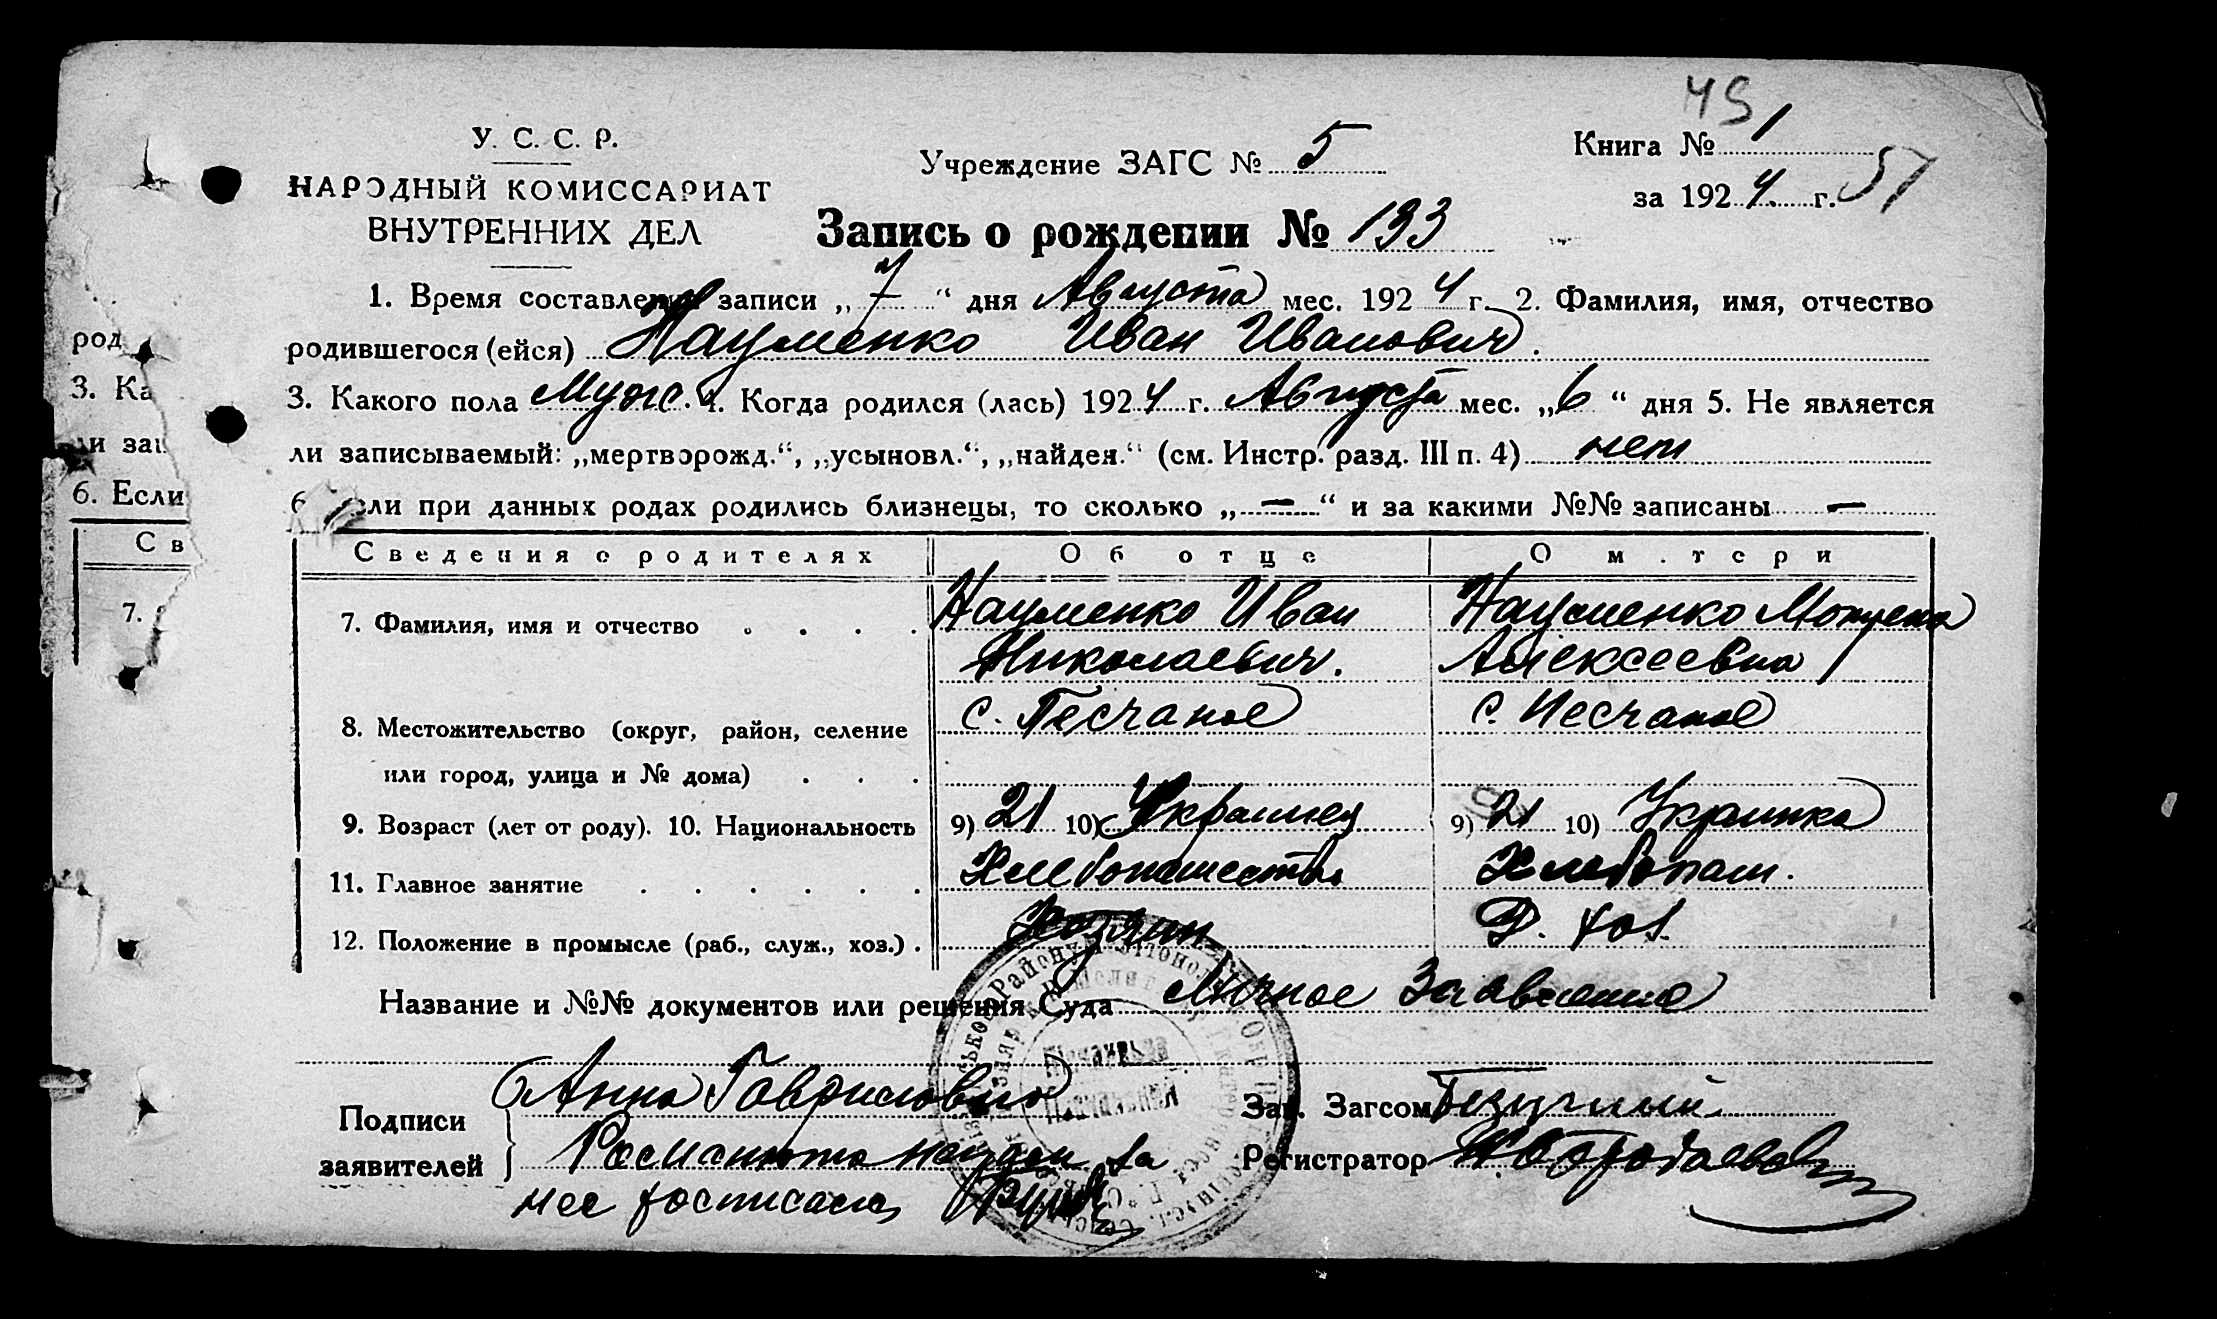 45
У. С. С. Р.
НАРОДНЫЙ КОМИССАРИАТ
ВНУТРЕННИХ ДЕЛ
Учреждение ЗАГС № 5
Книга № 1
за 1924 г. 51
Запись о рождении № 193
1. Время составления записи „7“ дня Августа мес. 1924 г. 2. Фамилия, имя, отчество
родившегося (ейся) Науменко Иван Иванович.
3. Какого пола Муж. 4. Когда родился (лась) 1924 г. Августа мес. „6“ дня 5. Не является
ли записываемый: „мертворожд.“, „усыновл.“, „найден.“ (см. Инстр. разд. III п. 4) нет
6. Если при данных родах родились близнецы, то сколько „—“ и за какими №№ записаны —
Сведения о родителях Об отце О м.тери
7. Фамилия, имя и отчество Науменко Иван Николаевич. Науменко Мотрена Алексеевна
8. Местожительство (округ, район, селение
или город, улица и № дома) с. Песчаное с. Песчаное
9. Возраст (лет от роду). 10. Национальность 9) 21 10) Украинец 9) 21 10) Украинка
11. Главное занятие Хлебопашество Хлебопаш.
12. Положение в промысле (раб., служ., хоз.) Хозяин Д. хоз.
Название и №№ документов или решения Суда Личное Заявление
Подписи
заявителей
Анна Гавриловна
за
нее росписался
Зав. Загсом
Регистратор
род
3. Ка
ли заи
6. Если
Св
7.